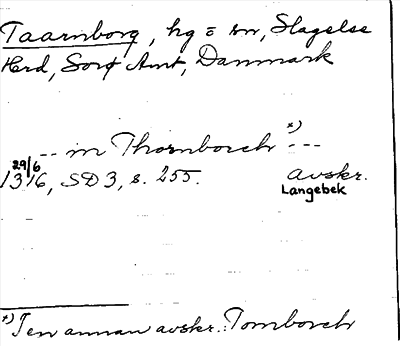 Taarnborg, hg o sn, Slagelse
Hrd, Sorø Amt, Danmark
-- in Thornborch *) ---
29/6
1316, SD 3, s. 255. avskr.
Langebek
*) I en annan avskr.: Tornborch